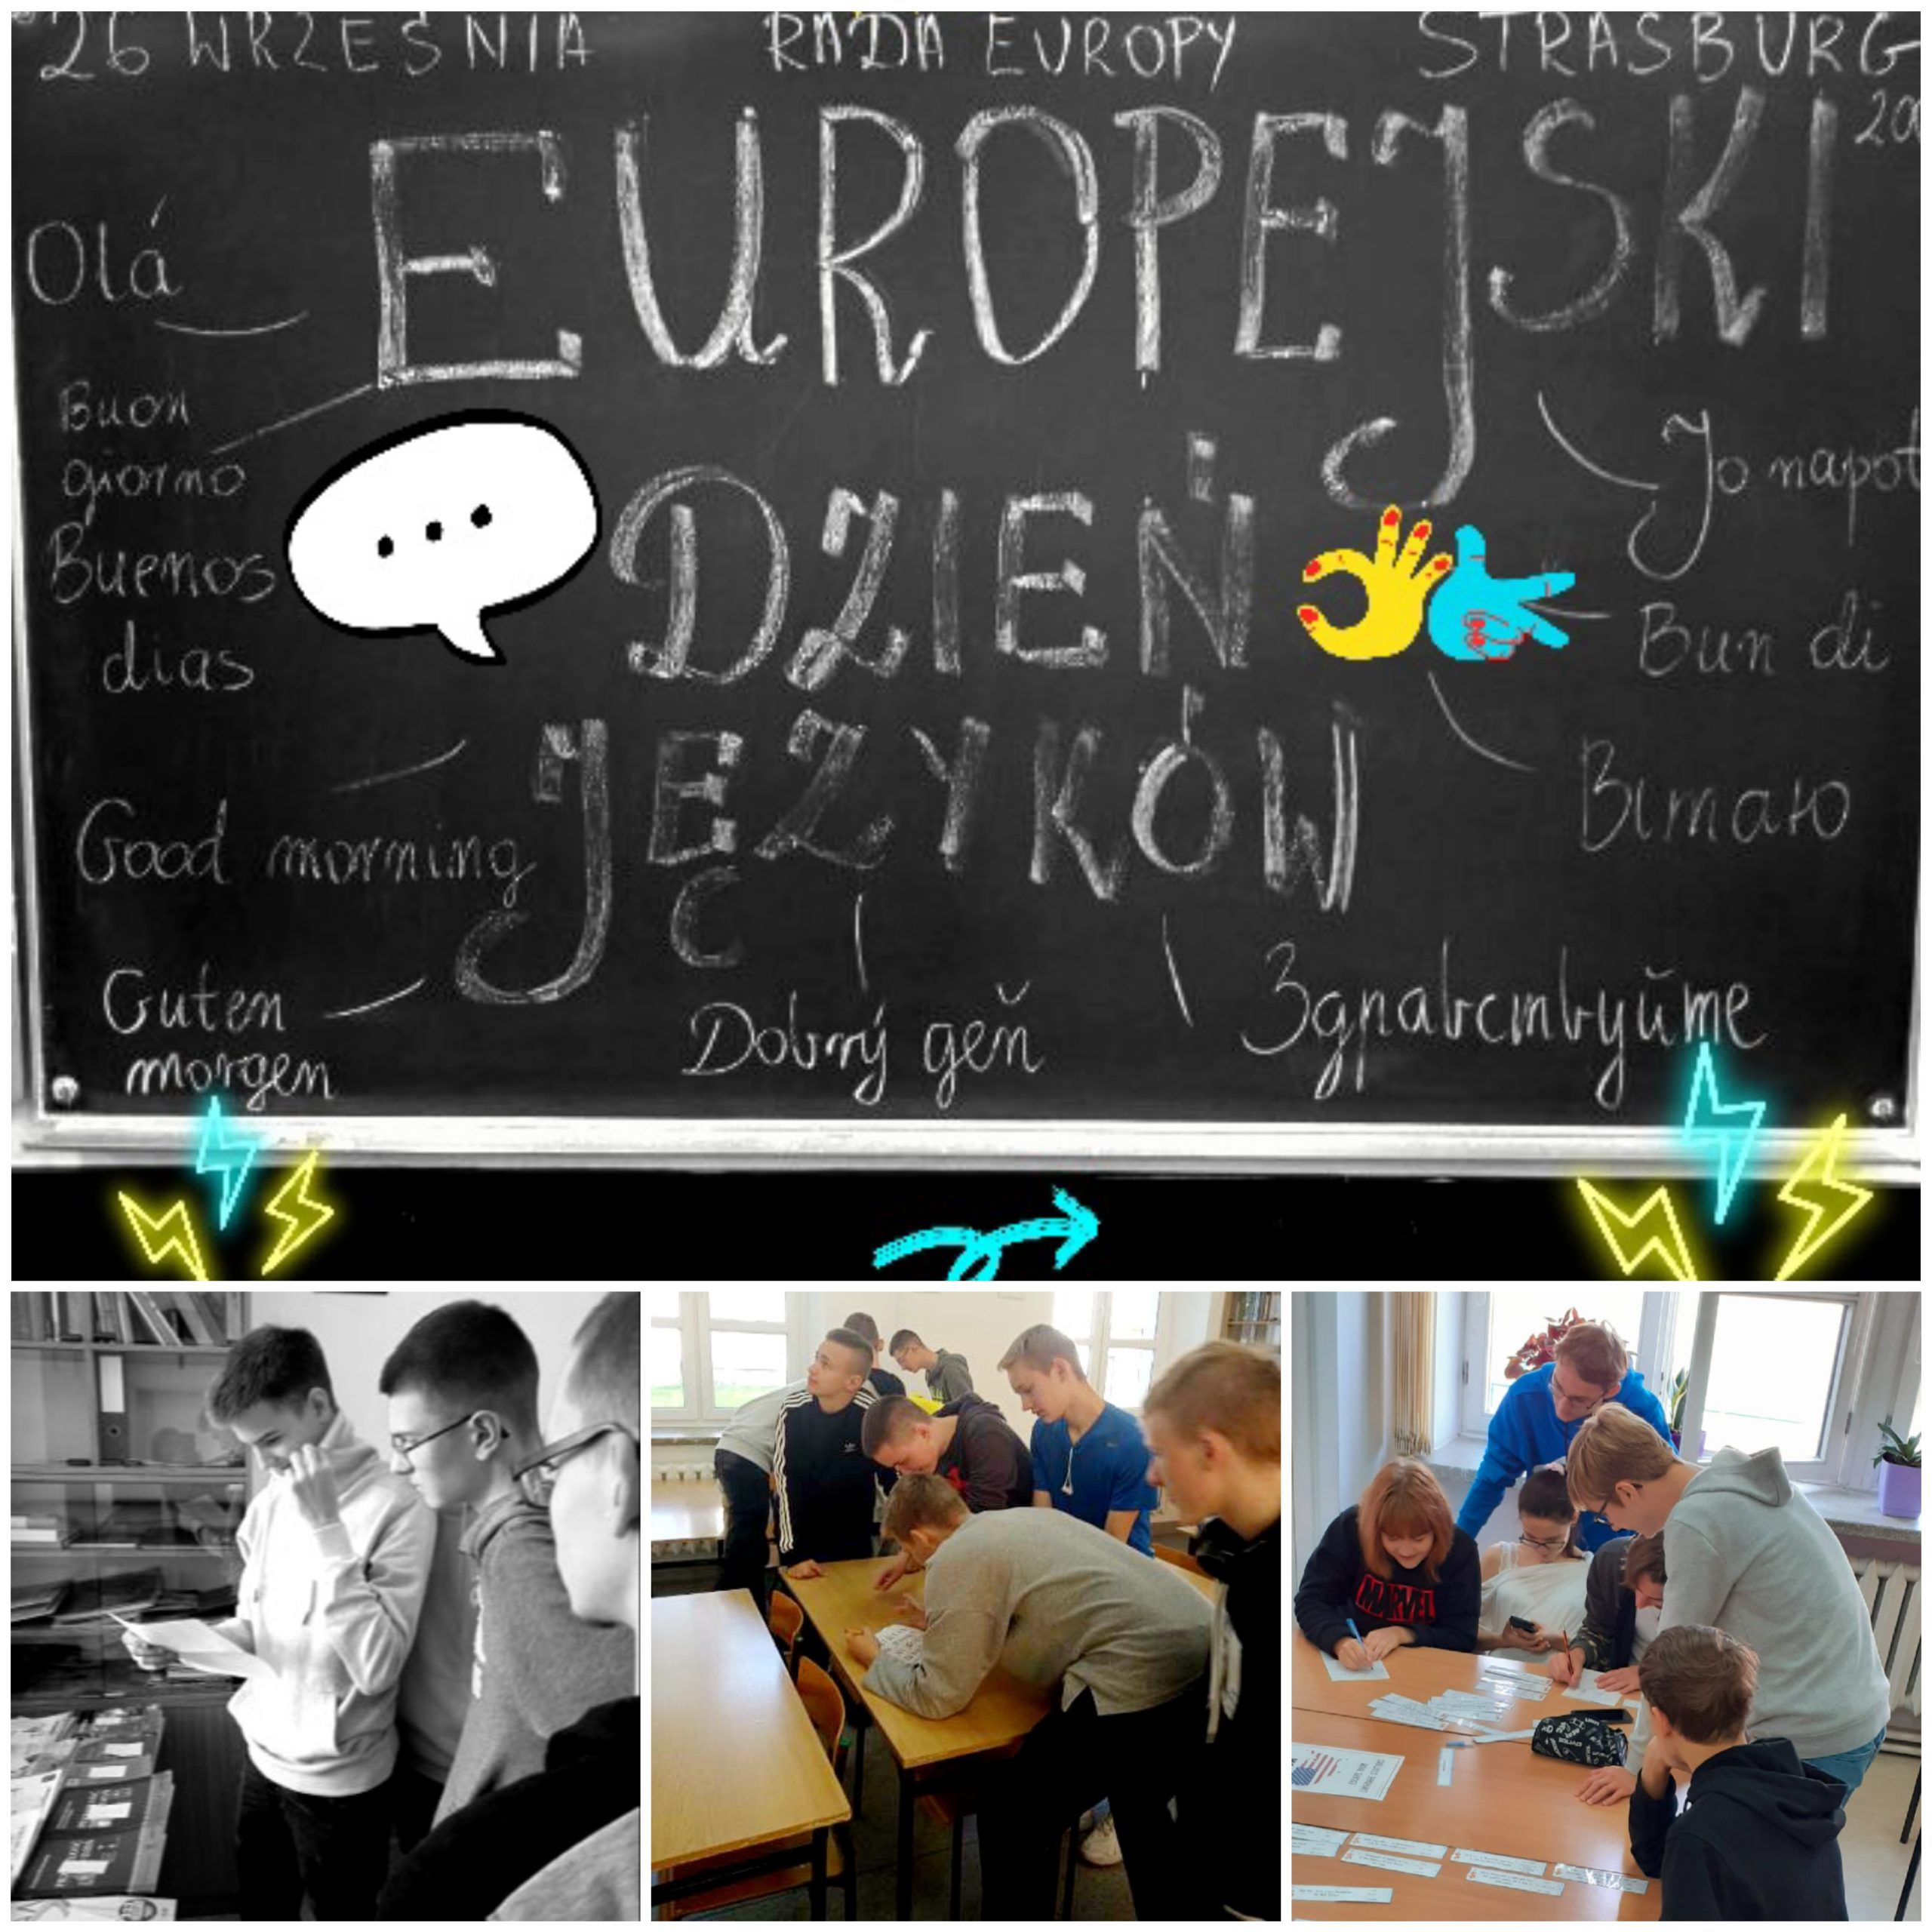 26 WRZEŚNIA RADA EUROPY STRASBURG
EUROPEJSKI
Olá
Buon
giorno
Buenos
dias
DZIEŃ
Jo napot
Bun di
JĘZYKÓW
Good morning
Вітаю
Guten
morgen
Dobrý geň
Здравствуйте
MARVEL